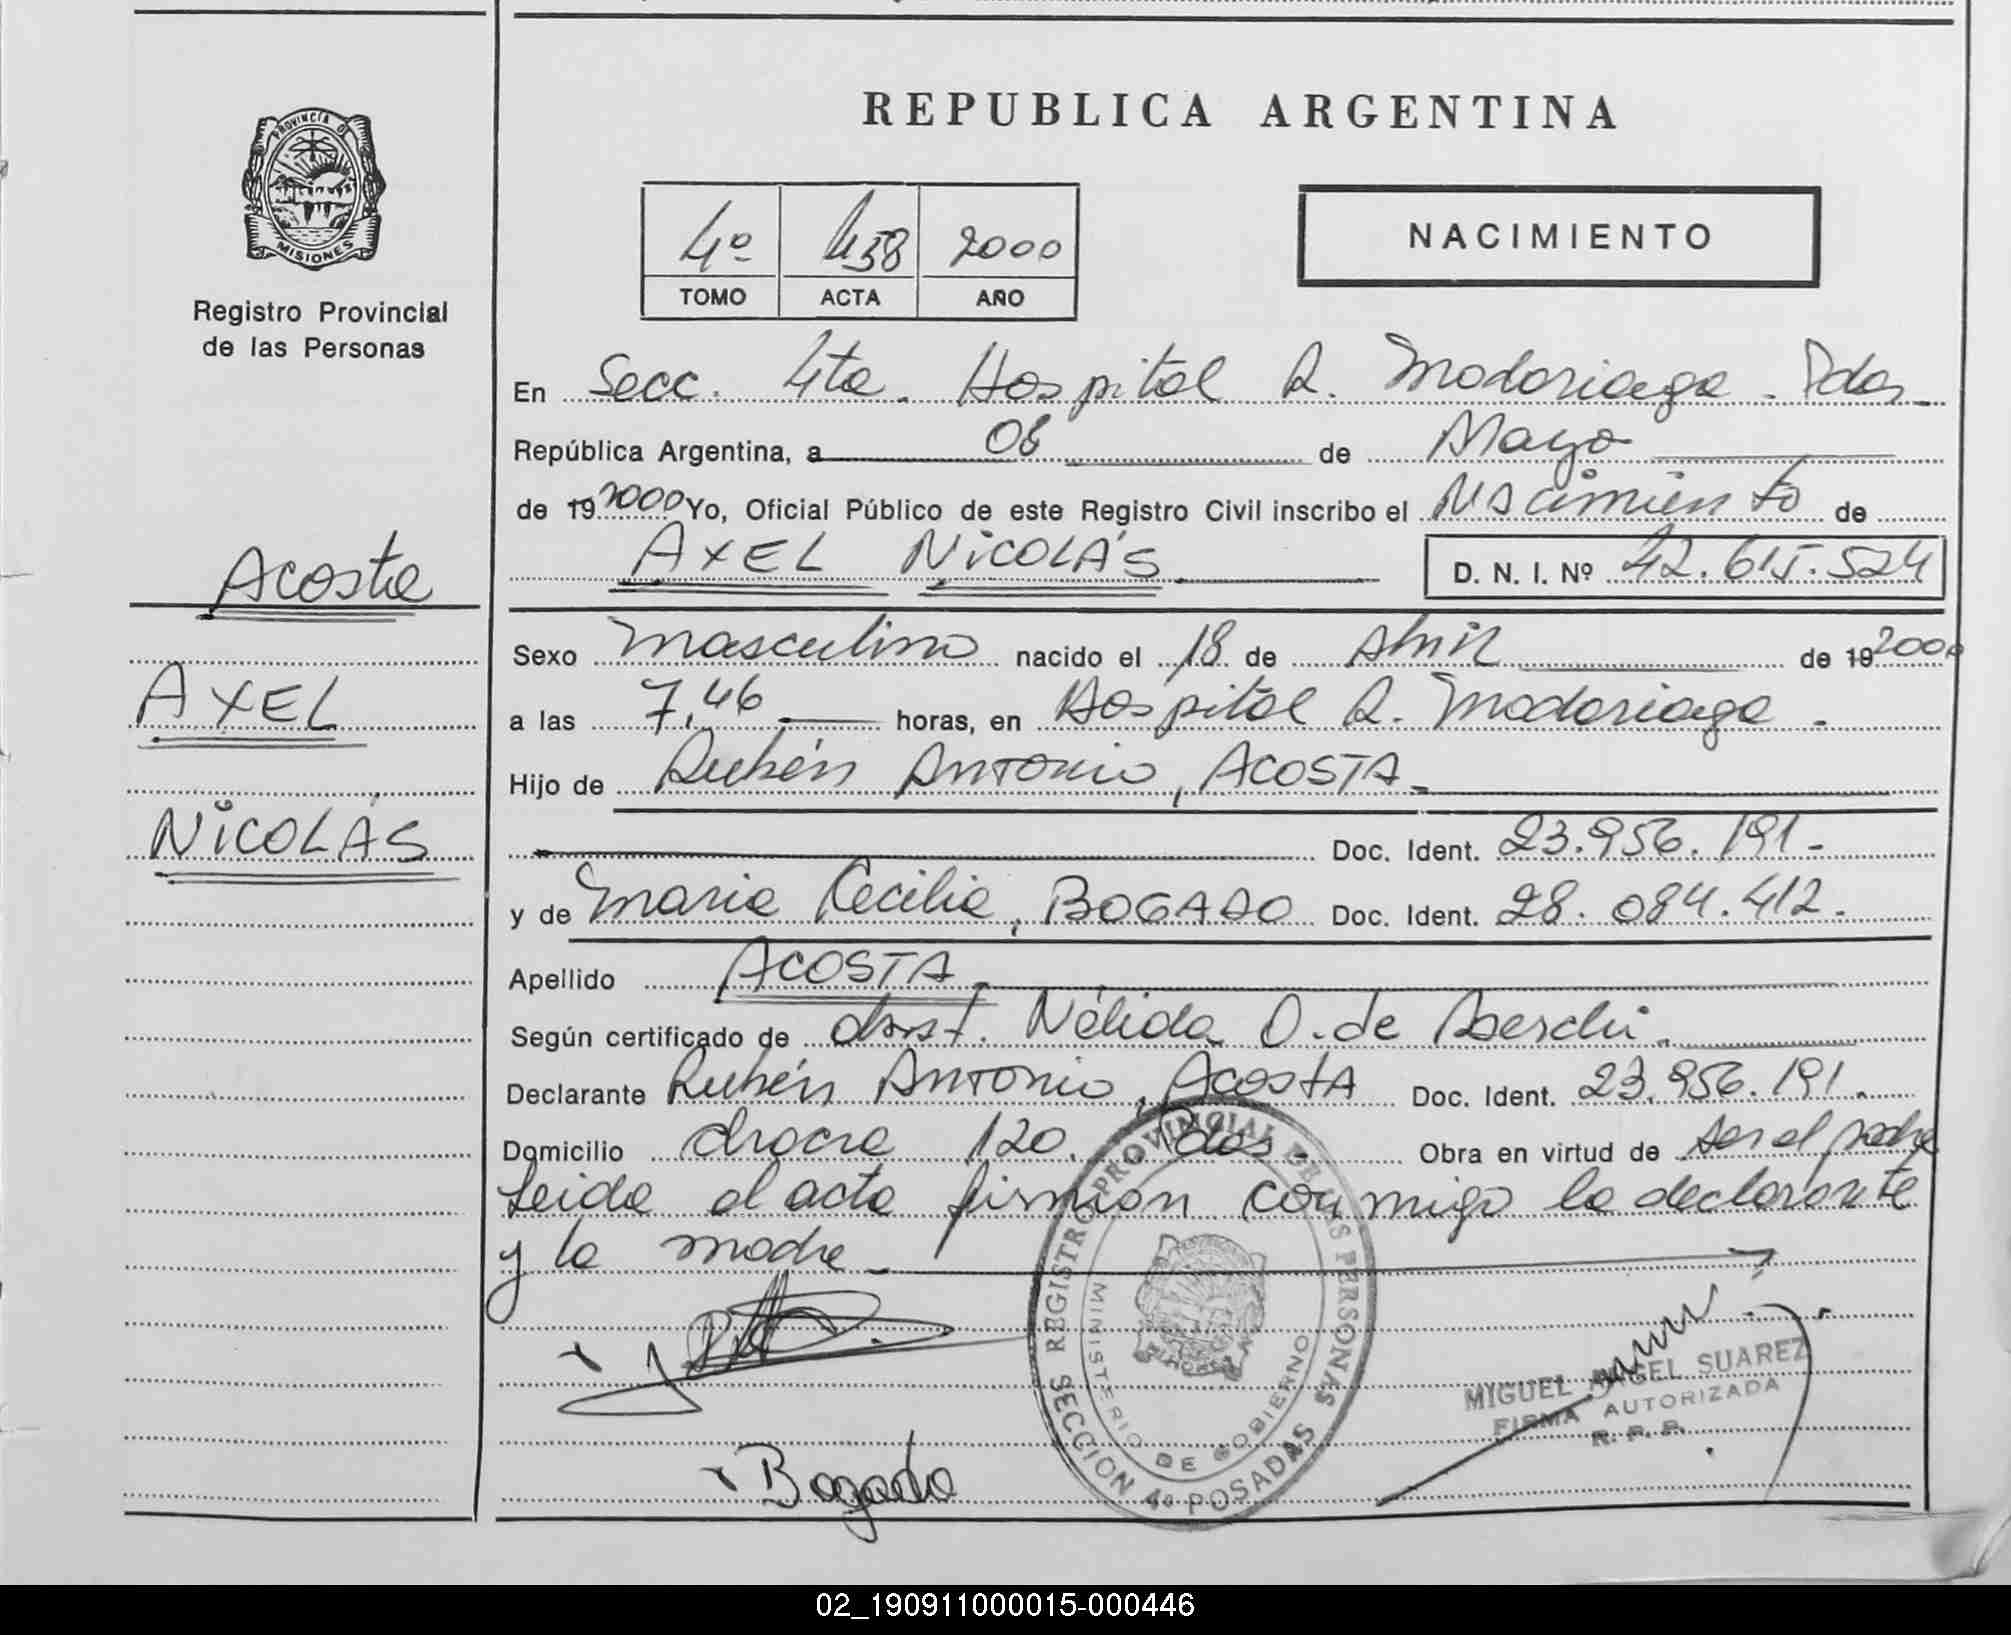 REPUBLICA ARGENTINA
PROVINCIA DE
MISIONES
Registro Provincial
de las Personas
4º 438 2000
TOMO ACTA AÑO
NACIMIENTO
En Secc. 4ta. Hospital R. Madariaga. Pdas.
República Argentina, a 08 de Mayo
de 19 2000 Yo, Oficial Público de este Registro Civil inscribo el Nacimiento de
AXEL NICOLÁS D. N. I. Nº 42.615.524
Acosta
AXEL
NICOLÁS
Sexo Masculino nacido el 18 de Abril de 19 2000
a las 7,46 horas, en Hospital R. Madariaga.
Hijo de Rubén Antonio, ACOSTA
Doc. Ident. 23.956.191.-
y de Maria Cecilia, BOGADO Doc. Ident. 28.084.412.
Apellido ACOSTA
Según certificado de obst. Nélida O. de
Declarante Rubén Antonio, Acosta Doc. Ident. 23.956.191.
Domicilio 120. Pdas. Obra en virtud de ser el padre
Leida el acta firman conmigo la declarante
y la madre
REGISTRO PROVINCIAL DE LAS PERSONAS
MINISTERIO DE GOBIERNO
SECCION 4º POSADAS
MIGUEL ANGEL SUAREZ
FIRMA AUTORIZADA
R. P. P.
Bogado
02_190911000015-000446